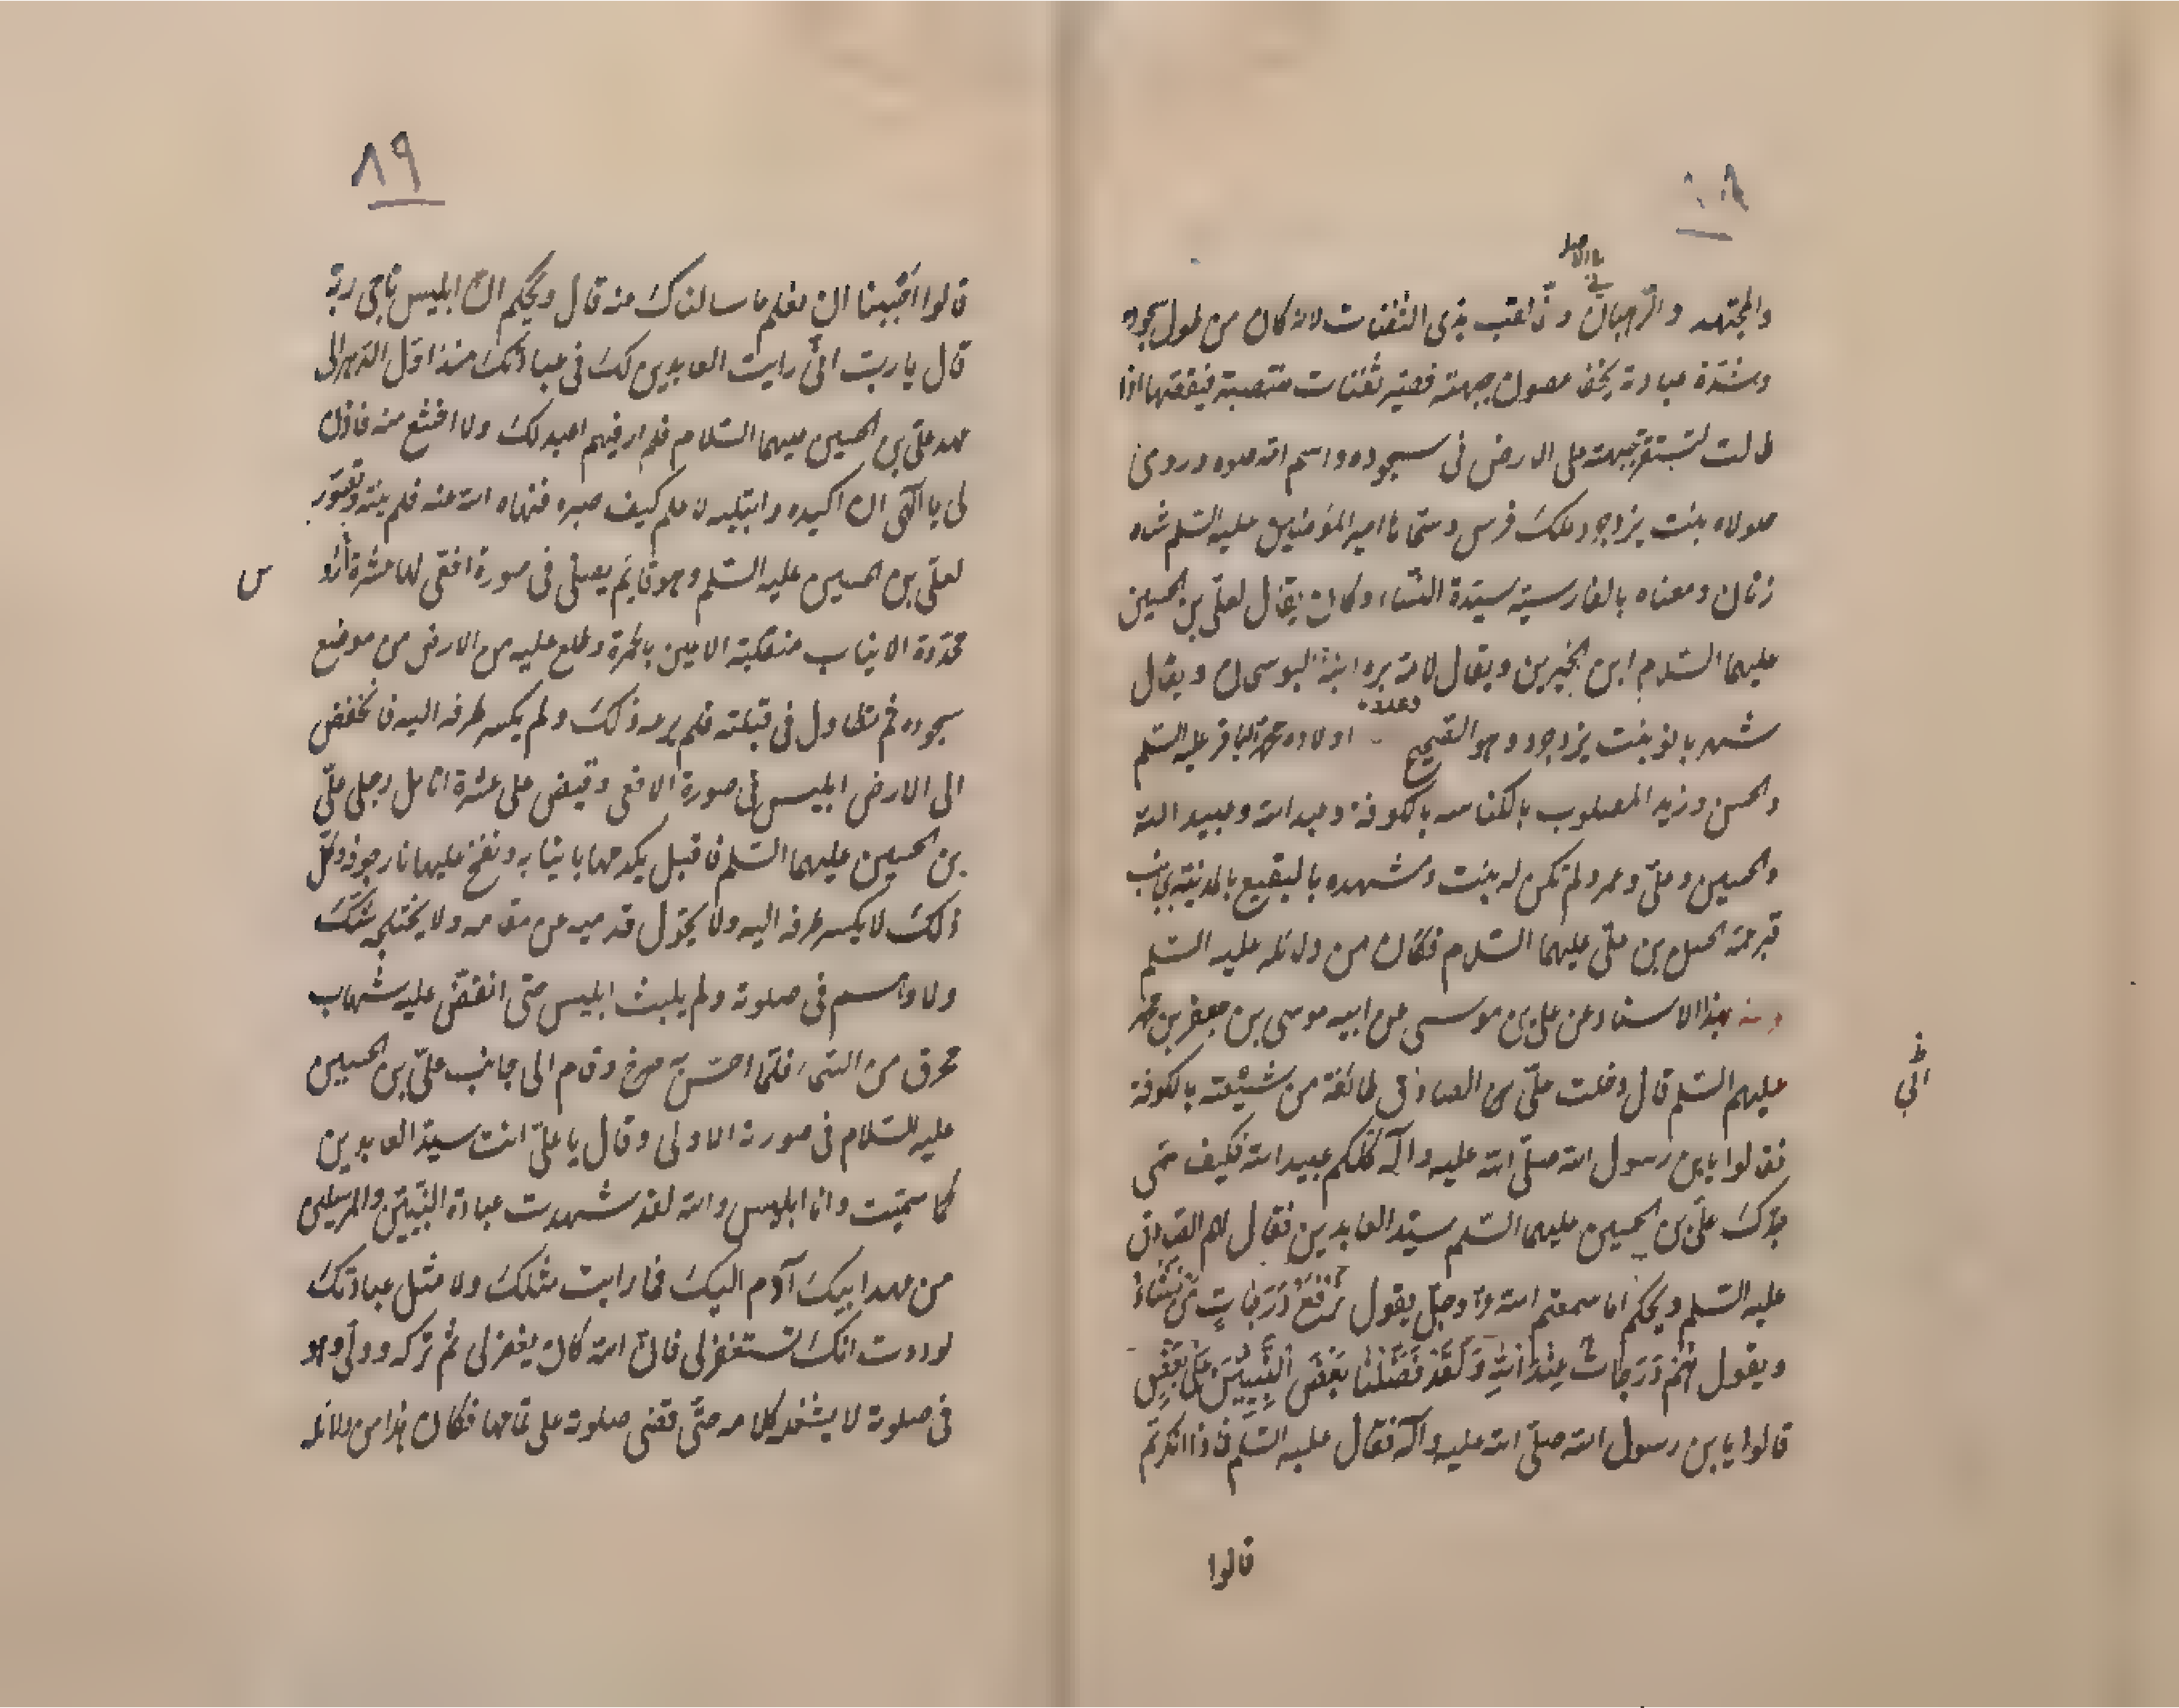 والمجتهد والرهبان وتالعتب بذى الثفنات لانه كان من طول سجوده
وشدة عبادته يخف مصون جبهته فصيّر ثفنات منتصبة فيقصها اذا
طالت لتستقر جبهته على الارض فى سجوده واسم امه صوه وروى
مولاه بنت يزدجرد ملك فرس وسماها امير المؤمنين عليه السلم شاه
زنان ومعناه بالفارسية سيدة النساء وكان يقال لعلى بن الحسين
عليهما السلام ابن الخيرين ويقال لامه بره ابنة النوسجان ويقال
شهر بانو بنت يزدجرد وهو الصحيح اولاده محمد الباقر عليه السلم
والحسن وزيد المصلوب بالكناسه بالكوفة وعبد الله وعبيد الله
والحسين وعلى وعمر ولم تكن له بنت ومشهده بالبقيع بالمدينة بجانب
قبر عمه الحسن بن على عليهما السلام فكان من دلائله عليه السلم
بهذا الاسناد عن على بن موسى عن ابيه موسى بن جعفر بن محمد
عليهم السلم قال دخلت على الصادق طائفة من شيعته بالكوفة
فقالوا يابن رسول الله صلى الله عليه وآله كلكم عبيد الله فكيف سمى
جدك على بن الحسين عليهما السلم سيد العابدين فقال لهم الصادق
عليه السلم ويحكم اما سمعتم الله عز وجل يقول نَرْفَعُ دَرَجَاتٍ مَنْ نَشَاءُ
ويقول هُمْ دَرَجَاتٌ عِنْدَ اللهِ وَلَقَدْ فَضَّلْنَا بَعْضَ النَّبِيِّينَ عَلَى بَعْضٍ
قالوا يابن رسول الله صلى الله عليه وآله فقال عليه السلم فاذا انكرتم
قالوا
٨٩
قالوا احببنا ان نعلم ما سالناك منه قال ويحكم ان ابليس ناجى ربه
قال يا رب انى رايت العابدين لك فى عبادتك منذ اول الدهر الى
عهد على بن الحسين عليهما السلام فلم ار فيهم اعبد لك ولا اخشع منه فاذن
لى يا الهى ان اكيده وابتليه لاعلم كيف صبره فنهاه الله عنه فلم ينته وتصور
لعلى بن الحسين عليه السلم وهو قايم يصلى فى صورة افعى لها عشرة ارؤ
س
محددة الانياب منقلبة الاعين بالحمرة وطلع عليه من الارض من موضع
سجوده ثم تطاول فى قبلته فلم يرعه ذلك ولم يكسر طرفه اليه فانخفض
الى الارض ابليس فى صورة الافعى وقبض على عشرة انامل رجلى على
بن الحسين عليهما السلم فاقبل يكدمها بانيابه ونفخ عليها نار جوفه وكل
ذلك لا يكسر طرفه اليه ولا يحول قدميه عن مقامه ولا يختلجه شك
ولا وهم فى صلوته ولم يلبث ابليس حتى انقض عليه شهاب
محرق من السماء فلما احس به صرخ وقام الى جانب على بن الحسين
عليه السلام فى صورته الاولى وقال يا على انت سيد العابدين
كما سميت وانا ابليس والله لقد شهدت عبادة النبيين والمرسلين
من عهد ابيك آدم اليك فما رايت مثلك ولا مثل عبادتك
لوددت انك تستغفر لى فان الله كان يغفر لى ثم تركه وولى وهو
فى صلوته لا يشغله كلامه حتى قضى صلوته على تمامها فكان هذا من دلائله